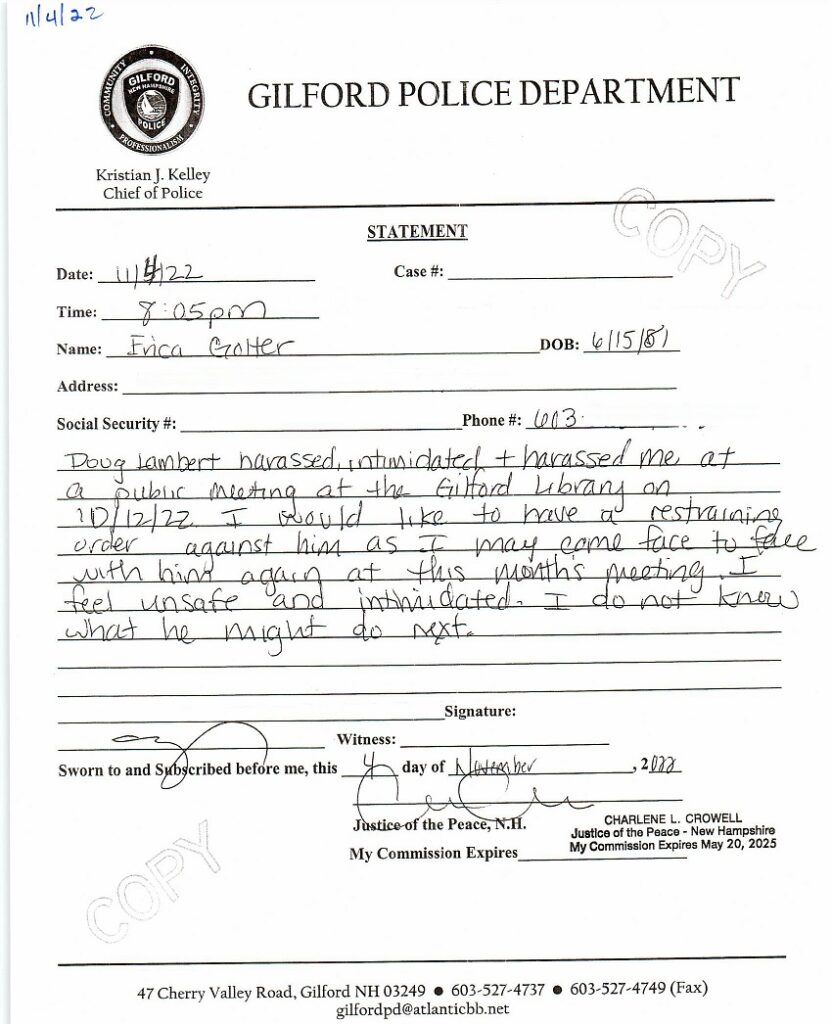 11/4/22
COMMUNITY INTEGRITY PROFESSIONALISM
GILFORD
NEW HAMPSHIRE
POLICE
GILFORD POLICE DEPARTMENT
Kristian J. Kelley
Chief of Police
STATEMENT
COPY
Date: 11/4/22 Case #:
Time: 8:05pm
Name: Erica Golter DOB: 6/15/81
Address:
Social Security #: Phone #: 603
Doug Lambert harassed, intimidated + harassed me at
a public meeting at the Gilford Library on
10/12/22. I would like to have a restraining
order against him as I may come face to face
with him again at this months meeting. I
feel unsafe and intimidated. I do not know
what he might do next.
Signature:
Witness:
Sworn to and Subscribed before me, this 4 day of November, 2022
Justice of the Peace, N.H.
CHARLENE L. CROWELL
Justice of the Peace - New Hampshire
My Commission Expires May 20, 2025
My Commission Expires
COPY
47 Cherry Valley Road, Gilford NH 03249 ● 603-527-4737 ● 603-527-4749 (Fax)
gilfordpd@atlanticbb.net